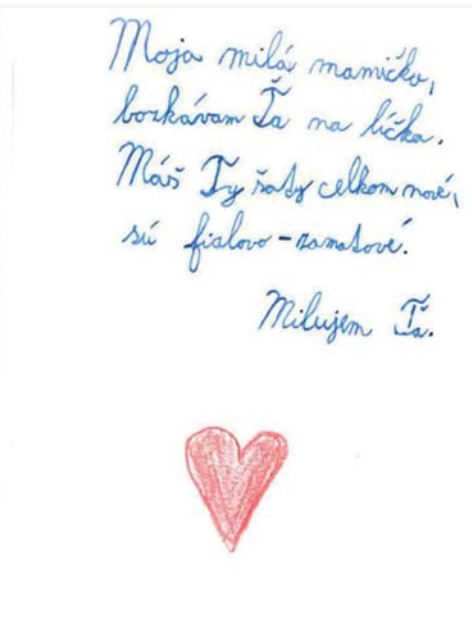 Moja milá mamička,
bozkávam Ťa na líčka.
Máš Ty šaty celkom nové,
sú fialovo-zamatové.
Milujem Ťa.